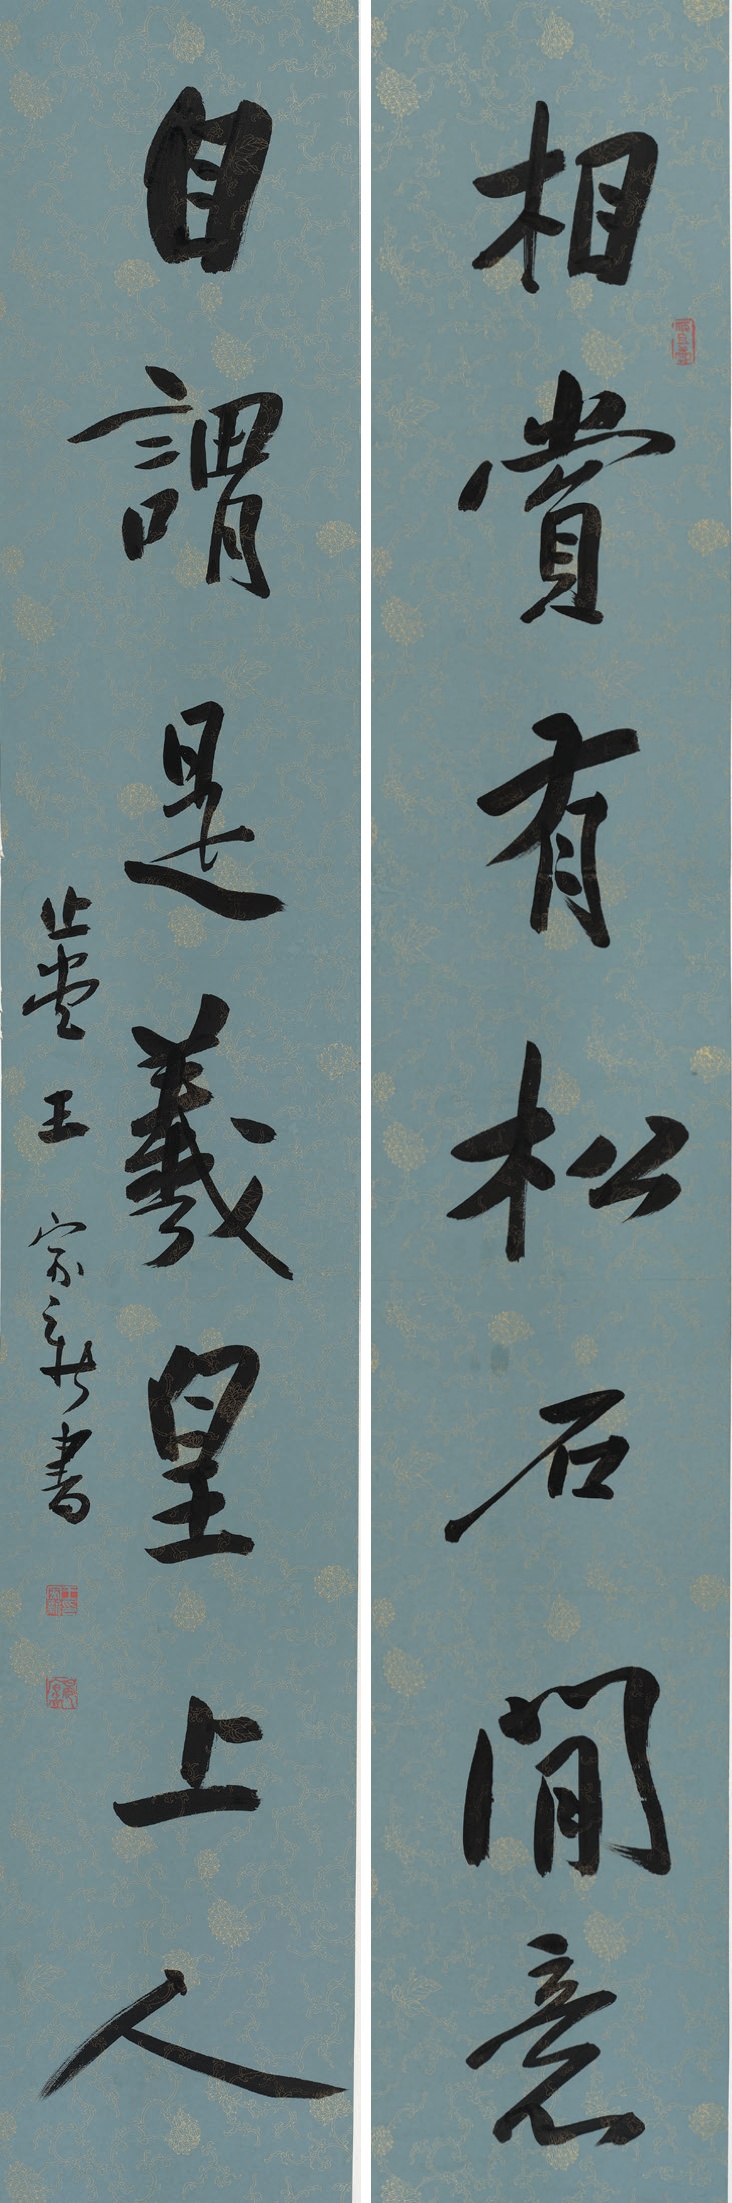 相賞有松石間意
自謂是羲皇上人
止堂 王 家新書